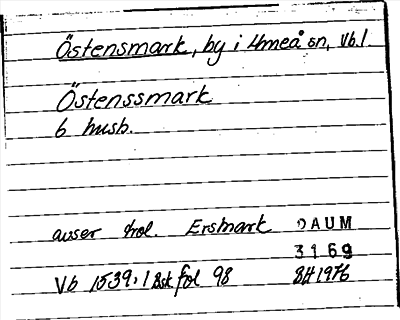 Östensmark, by i Umeå sn, Vb.l.
Östenssmark
6 husb.
avser trol. Ersmark DAUM
3169
Vb 1539:1 Bsk fol 98 BH 1976